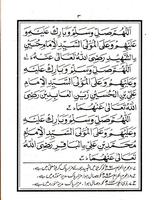 ۳
اَللّٰهُمَّ صَلِّ وَسَلِّمْ وَبَارِكْ عَلَيْهِ وَ
عَلَيْهِمْ وَعَلَى الْمَوْلَى السَّيِّدِ الْاِمَامِ حُسَيْنِ
الشَّهِيْدِ رَضِىَ اللّٰهُ تَعَالٰى عَنْهُ
اَللّٰهُمَّ صَلِّ وَسَلِّمْ وَبَارِكْ عَلَيْهِ وَ
عَلَيْهِمْ وَعَلَى الْمَوْلَى السَّيِّدِ الْاِمَامِ
عَلِىِّ بْنِ الْحُسَيْنِ زَيْنِ الْعَابِدِيْنَ رَضِىَ
اللّٰهُ تَعَالٰى عَنْهُمَا
اَللّٰهُمَّ صَلِّ وَسَلِّمْ وَبَارِكْ عَلَيْهِ
وَعَلَيْهِمْ وَعَلَى الْمَوْلَى السَّيِّدِ الْاِمَامِ
مُحَمَّدِ بْنِ عَلِىٍّ الْبَاقِرِ رَضِىَ اللّٰهُ
تَعَالٰى عَنْهُمَا